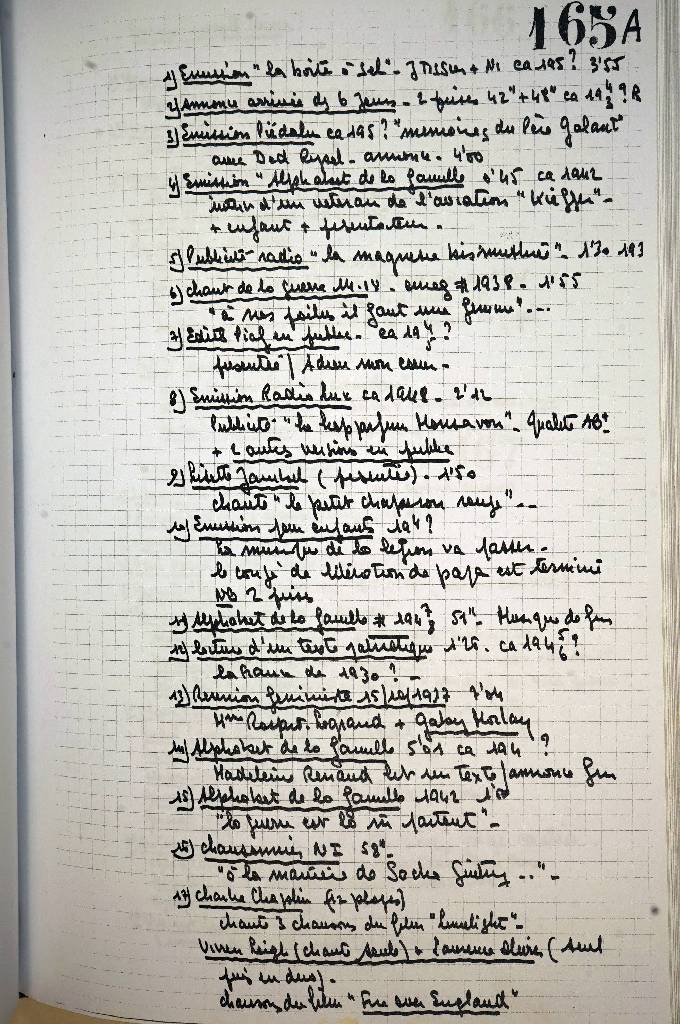 165A
1) Emission "La boîte à sel" - J Tissier + NI ca 195? 3'55
2) Annonce arrivée des 6 jours - 2 prises 42" + 48" ca 194/3? R
3) Emission Piédalu ca 195? "memoires du Père Galant"
avec Ded Rysel - annonce - 4'00
4) Emission "Alphabet de la famille 0'45 ca 1942
interv d'un veteran de l'aviation "Kieffer" -
+ enfant + présentateur -
5) Publicité radio "la magnesie bismurée" - 1'30 193
6) chant de la guerre 14-18 - enreg # 1938 - 1'55
"à nos poilus il faut une femme" ...
7) Edith Piaf en public - ca 194/5?
présentée / Adieu mon coeur -
8) Emission Radio Lux ca 1948 - 2'12
Publicité "le Monsavon" - Qualité AB+
+ 2 autres versions en public
9) Lisette Jambel (présentée) - 1'50
chante "le petit chaperon rouge" --
10) Emission pour enfants 194?
La musique de la legion va passer -
le congé de libération de papa est terminé
NB 2 prises
11) Alphabet de la famille # 194 7/8 51" - Musique de fin
12) lecture d'un texte patriotique 1'25 - ca 194 5/6?
la France de 1930? -
13) Reunion feministe 15/10/1937 7'04
Mme Legrand + Gaby Morlay
14) Alphabet de la famille 5'01 ca 194 ?
Madeleine Renaud lit un texte / annonce fin
15) Alphabet de la famille 1942 1'
"la guerre est là ni partout" -
16) chansonnier NI 58" -
"à la manière de Sacha Guitry .." -
17) Charlie Chaplin (12 plages)
chante 3 chansons du film "Limelight" -
Vivien Leigh (chante seule) + Laurence Olivier (seul
puis en duo) -
chanson du film "Fire over England"